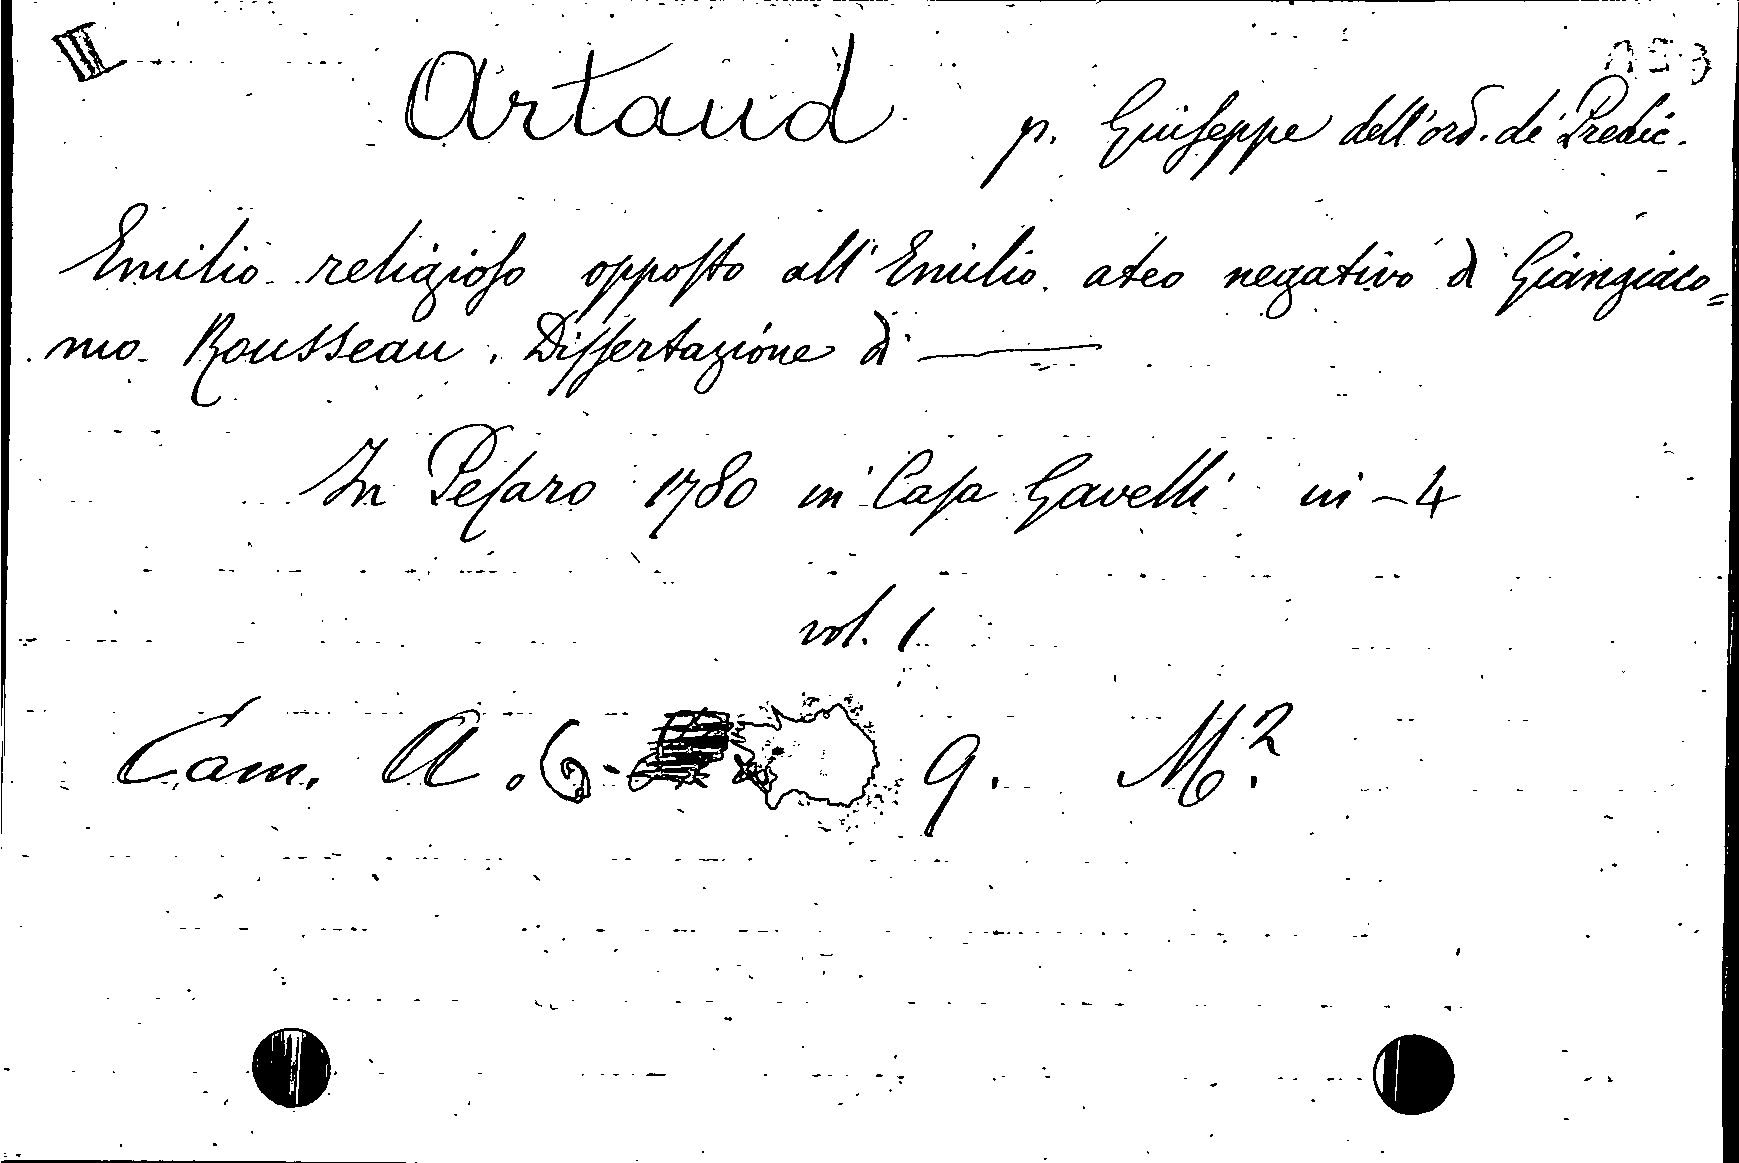 III
Artaud p. Giuseppe dell'ord. de' Predic.
Emilio religioso opposto all'Emilio ateo negativo di Giangiaco=
mo Rousseau. Dissertazione di ———
In Pesaro 1780 in Casa Gavelli in-4
vol. 1
Cam. A. 6. 9. M.2